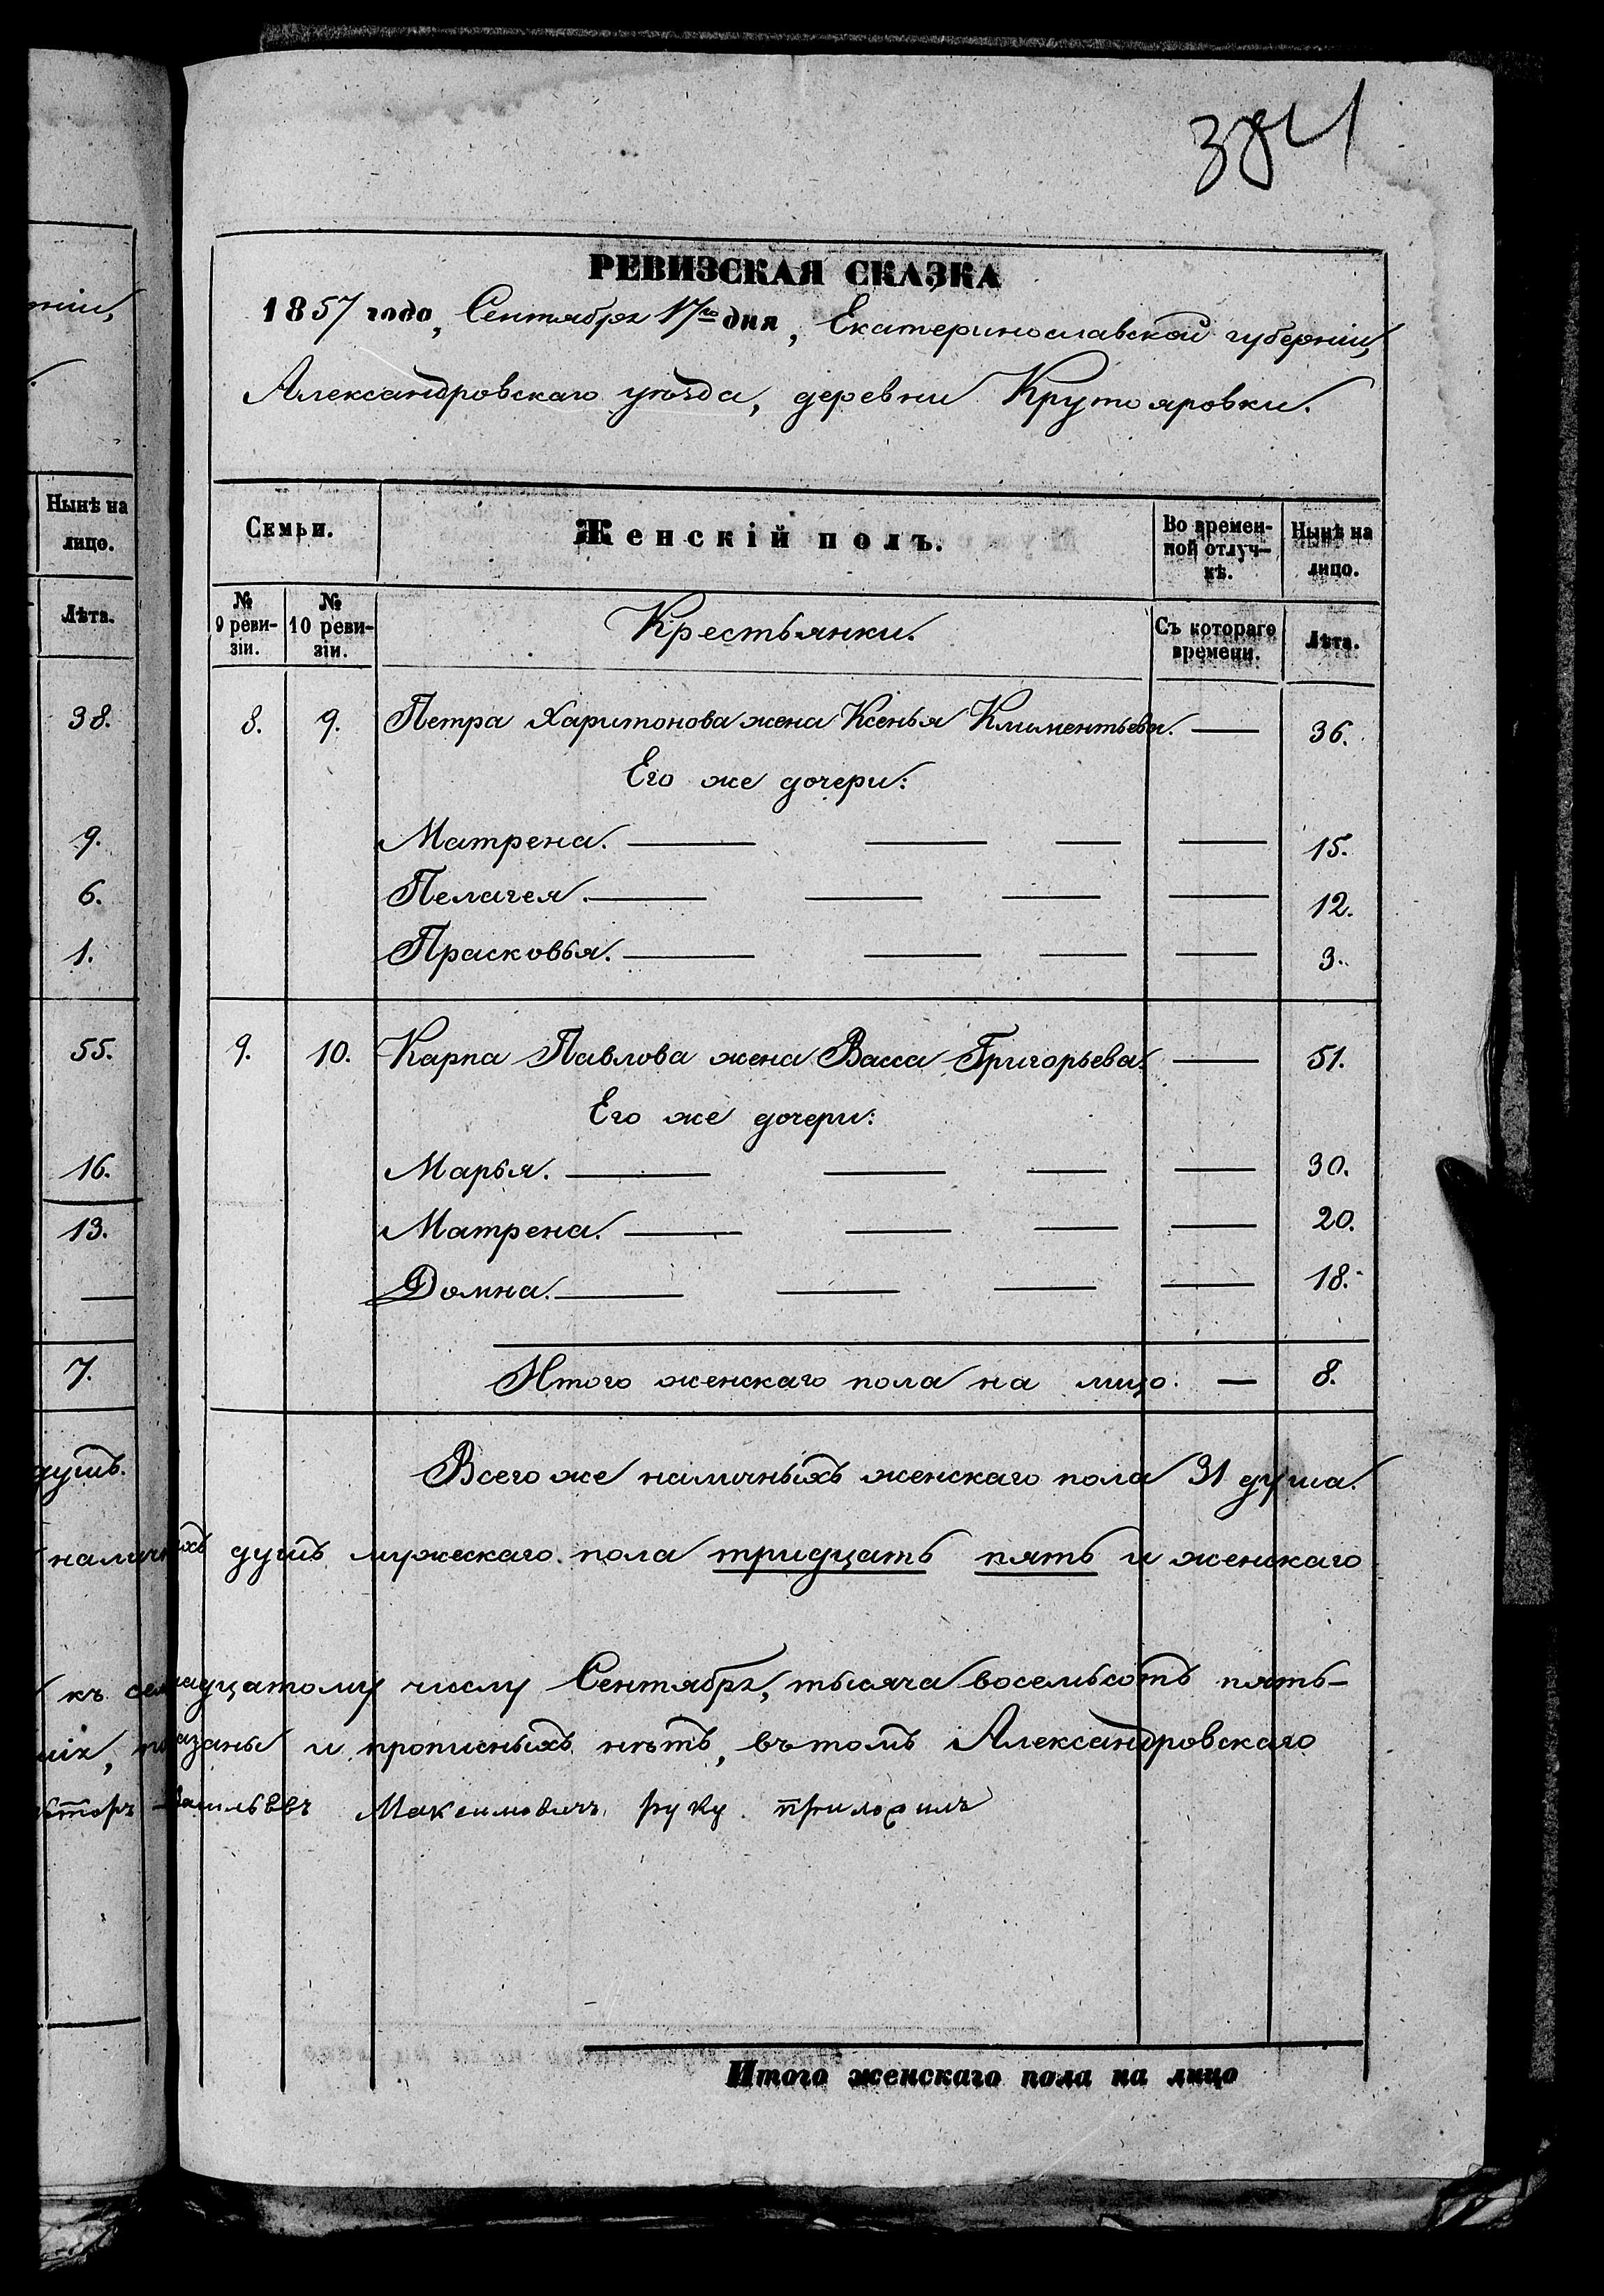 381
РЕВИЗСКАЯ СКАЗКА
1857 года, Сентября 17го дня, Екатеринославской губерніи,
Александровскаго уѣзда, деревни Крутояровки.
рніи,
Нынѣ на
лицо.
Лѣта.
Семьи.
Женскій полъ.
Во времен-
ной отлуч-
кѣ.
Нынѣ на
лицо.
№
9 реви-
зіи.
№
10 реви-
зіи.
Крестьянки.
Съ котораго
времени.
Лѣта.
38. 8. 9. Петра Харитонова жена Ксенья Климентьева. — 36.
Его же дочери:
9. Матрена. — — — — 15.
6. Пелагея. — — — — 12.
1. Прасковья. — — — — 3.
55. 9. 10. Карпа Павлова жена Васса Григорьева. — 51.
Его же дочери:
16. Марья. — — — — 30.
13. Матрена. — — — — 20.
— Домна. — — — — 18.
7. Итого женскаго пола на лицо. — 8.
душъ. Всего же наличныхъ женскаго пола 31 душа.
наличныхъ душъ мужескаго пола тридцать пять и женскаго
къ семнадцатому числу Сентября, тысяча восемьсотъ пять-
показаны и прописныхъ нѣтъ, въ томъ Александровскаго
Васильевъ Максимовичъ руку приложилъ
Итого женскаго пола на лицо